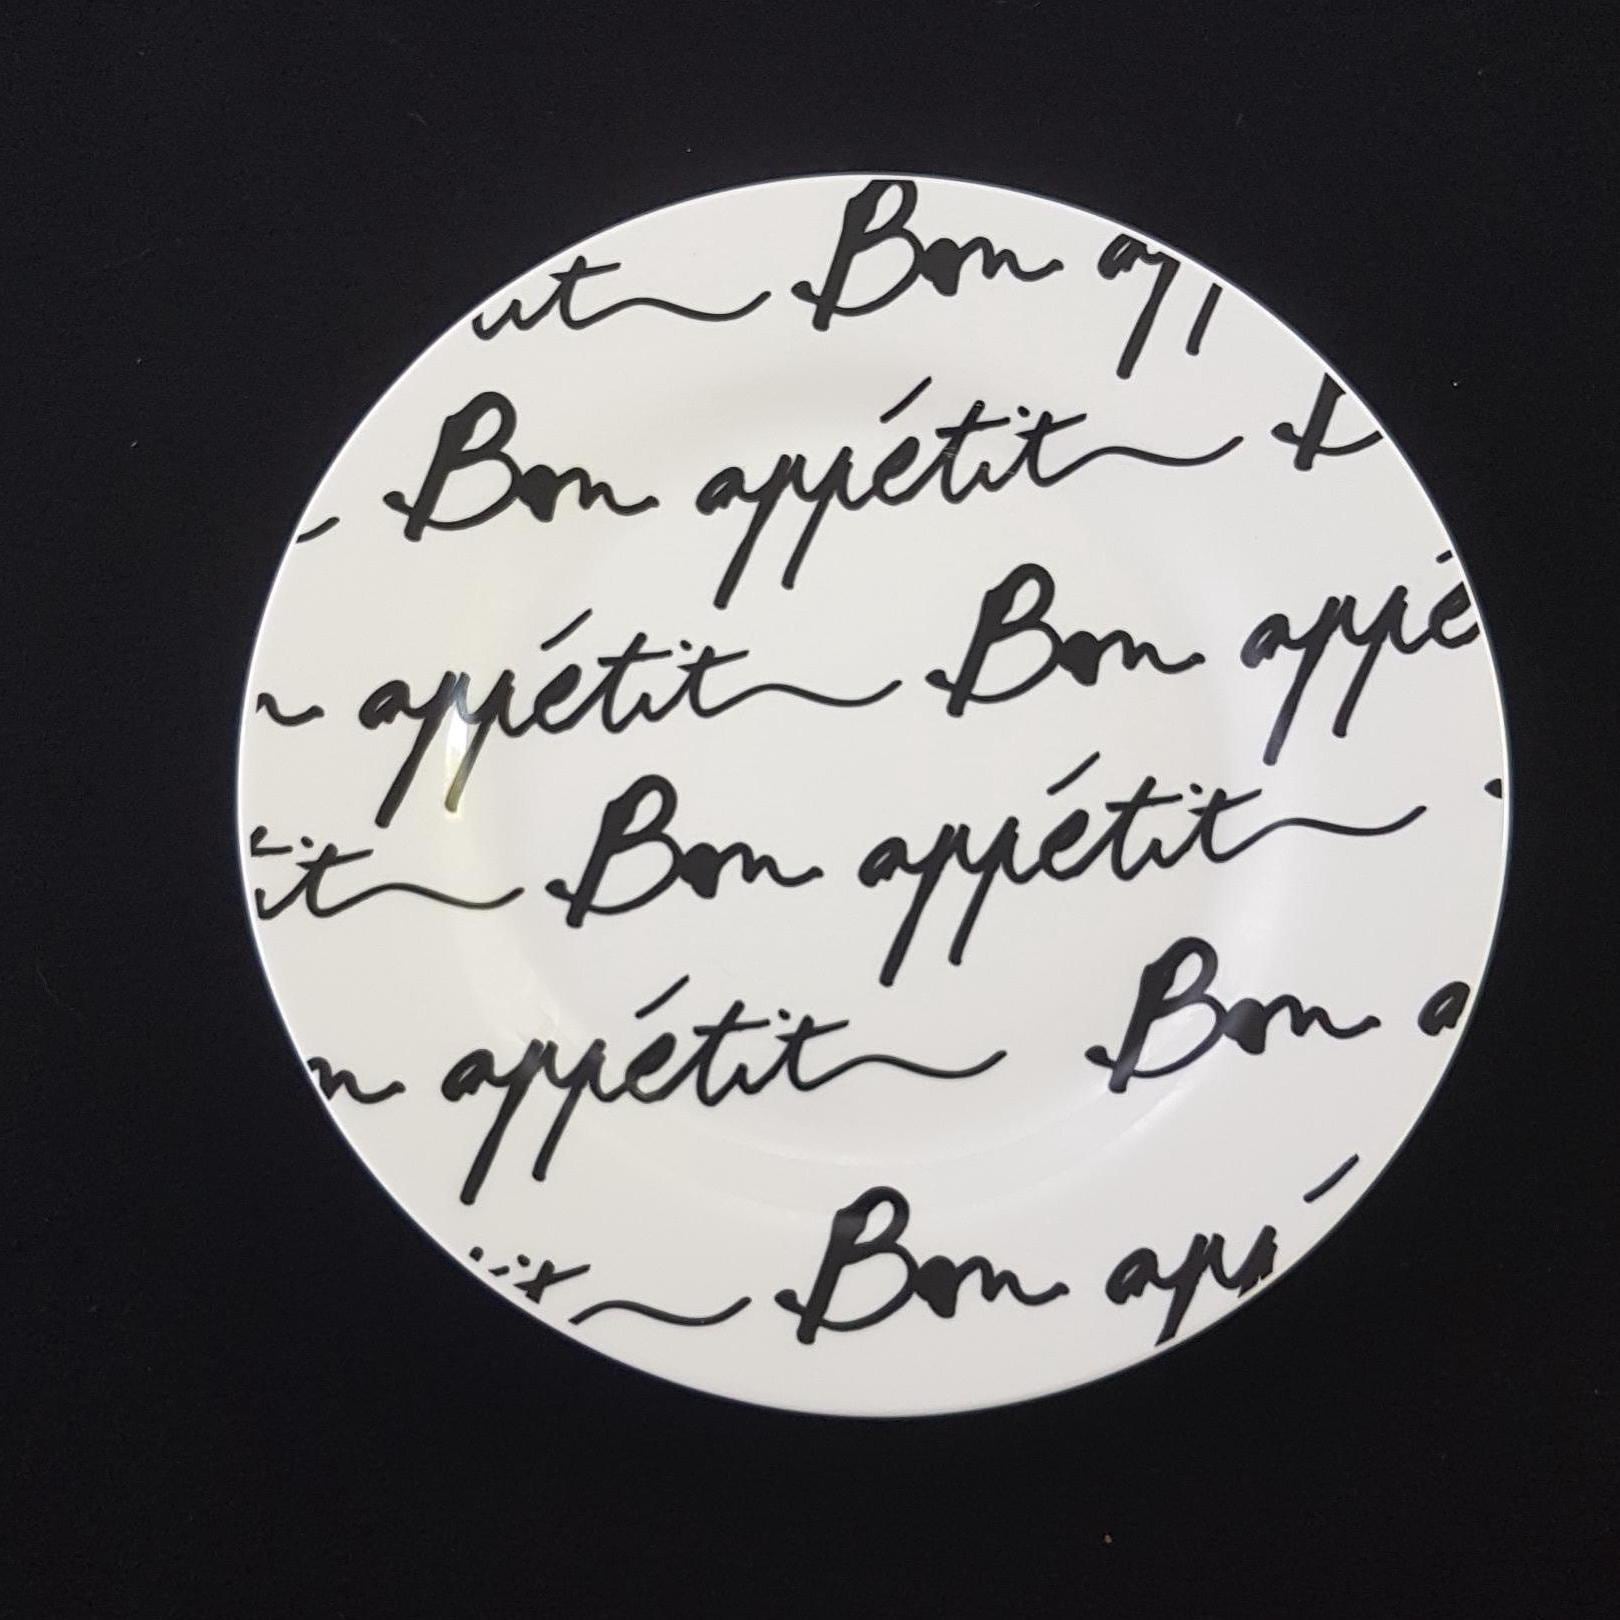 it Bon app
Bon appétit B
n appétit Bon appé
tit Bon appétit
n appétit Bon a
tit Bon app